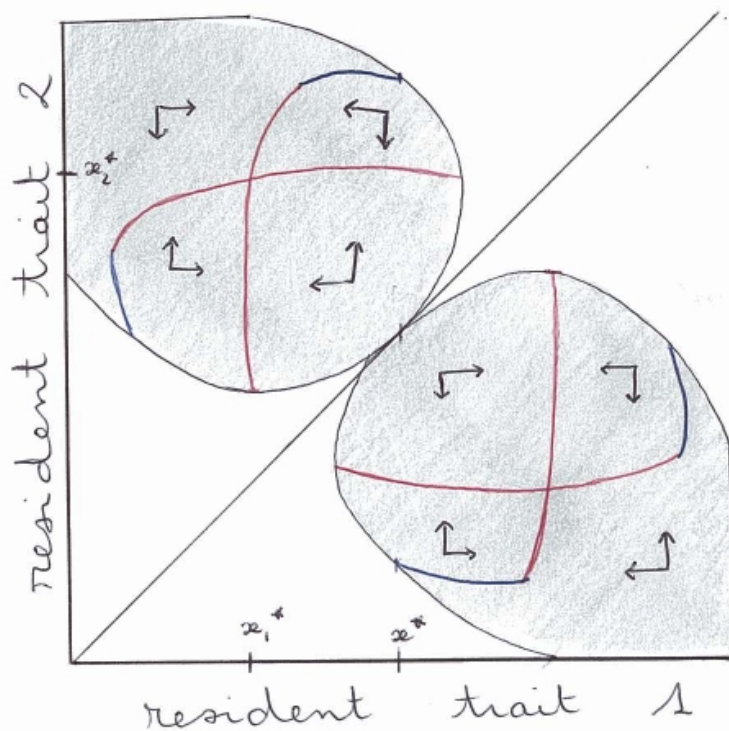 resident trait 2
x₂*
x₁*
x*
resident trait 1